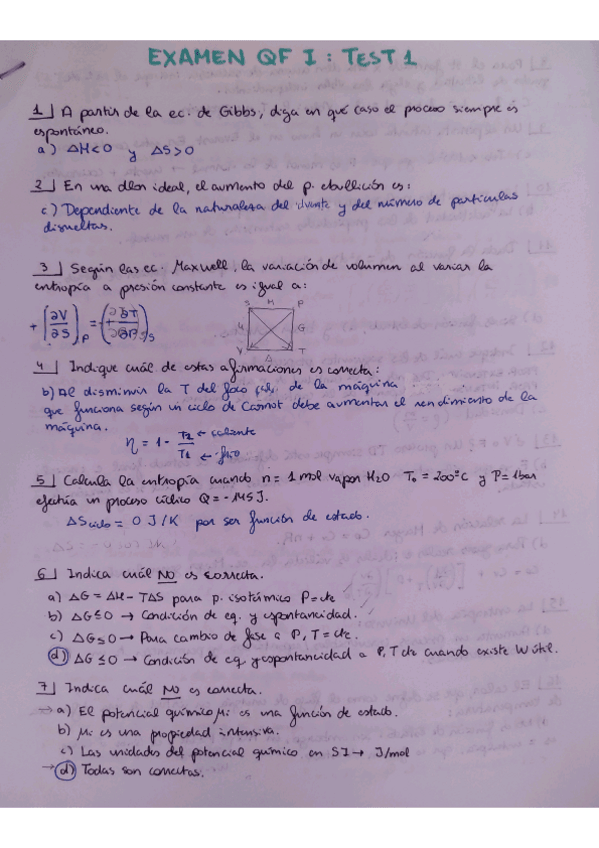 EXAMEN QF I : TEST 1
1 A partir de la ec. de Gibbs, diga en qué caso el proceso siempre es
espontáneo.
a) ΔH<0 y ΔS>0
2 En una dlon ideal, el aumento del p. ebullición es:
c) Dependiente de la naturaleza del dvante y del número de partículas
disueltas.
3 Según las ec. Maxwell, la variación de volumen al variar la
entropía a presión constante es igual a:
S H P
+ [∂V/∂S]P = (+∂T/∂P)S
4 G
V A T
4 Indique cuál de estas afirmaciones es correcta:
b) Al disminuir la T del foco de la máquina
que funciona según un ciclo de Carnot debe aumentar el rendimiento de la
máquina.
η = 1 - T2 ← caliente
T1 ← frío
5 Calcula la entropía cuando n = 1 mol vapor H2O T0 = 200°C y P = 1bar
efectúa un proceso cíclico Q = -145J.
ΔSciclo = 0 J/K por ser función de estado.
6 Indica cuál NO es correcta.
a) ΔG = ΔH - TΔS para p. isotérmico P=cte
b) ΔG ≤ 0 → Condición de eq. y espontaneidad.
c) ΔG ≤ 0 → Para cambio de fase a P, T = cte.
d) ΔG ≤ 0 → Condición de eq. y espontaneidad a P, T cte cuando existe W útil.
7 Indica cuál NO es correcta.
→ a) El potencial químico μi es una función de estado.
b) μi es una propiedad intensiva.
c) Las unidades del potencial químico en SI → J/mol
→ d) Todas son correctas.